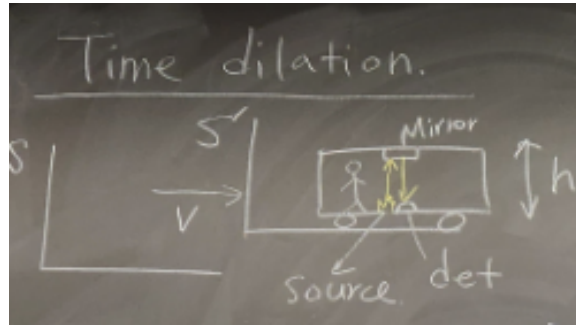 Time dilation.
S
S'
V
Mirror
h
source.
det